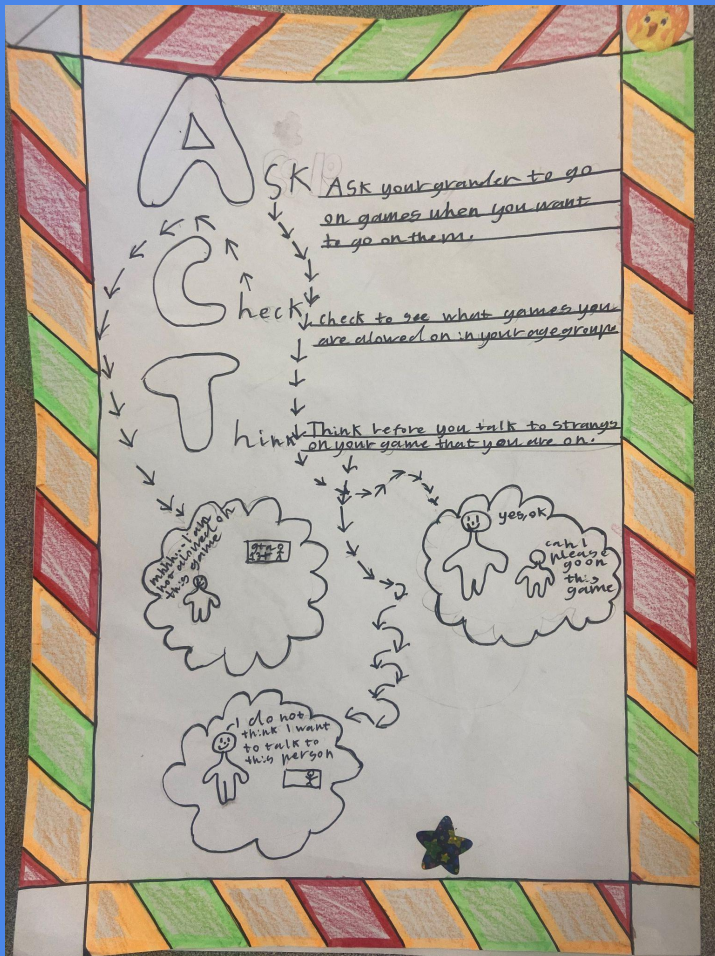 ASK
ASK your grander to go
on games when you want
to go on them.
Check
Check to see what games you
are allowed on in your age group.
Think
Think before you talk to strangs
on your game that you are on.
mhhh... I am
not allowed on
this game
yes, ok
can I
please
go on
this
game
I do not
think I want
to talk to
this person